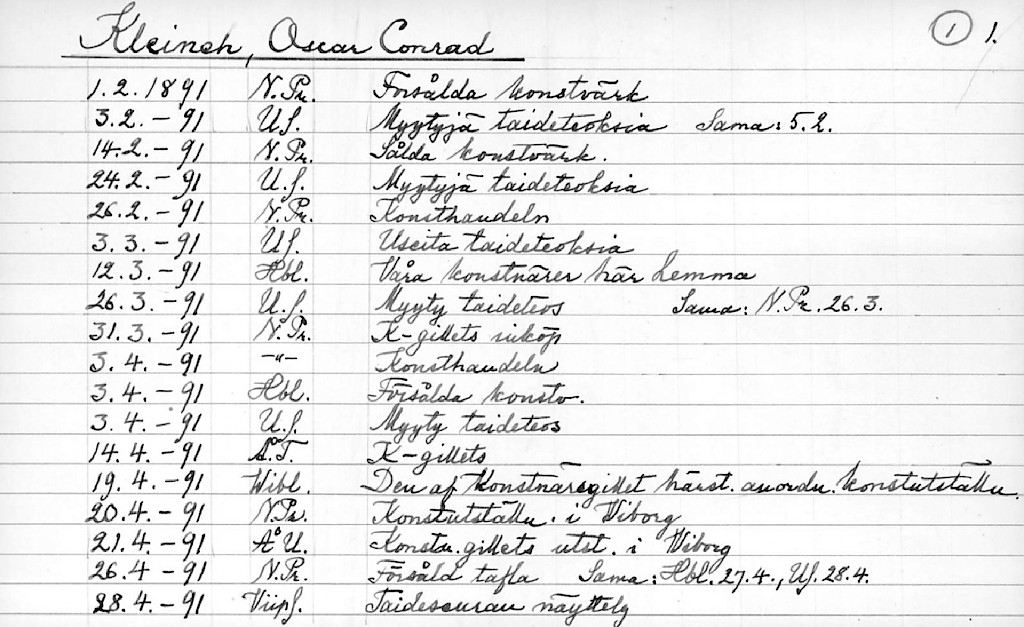 Kleineh, Oscar Conrad ① 1.
1.2.1891 N.Pr. Försålda konstvärk
3.2.-91 U.S. Myytyjä taideteoksia Sama: 5.2.
14.2.-91 N.Pr. Sålda konstvärk.
24.2.-91 U.S. Myytyjä taideteoksia
26.2.-91 N.Pr. Konsthandeln
3.3.-91 U.S. Useita taideteoksia
12.3.-91 Hbl. Våra konstnärer här hemma
26.3.-91 U.S. Myyty taideteos Sama: N.Pr. 26.3.
31.3.-91 N.Pr. K-gillets inköp
3.4.-91 -"- Konsthandeln
3.4.-91 Hbl. Försålda konstv.
3.4.-91 U.S. Myyty taideteos
14.4.-91 Å.T. K-gillets
19.4.-91 Wibl. Den af Konstnärsgillet härst. anordn. konstutställn.
20.4.-91 N.Pr. Konstutställn. i Viborg
21.4.-91 Å.U. Konstn.gillets utst. i Viborg
26.4-91 N.Pr. Försåld tafla Sama: Hbl. 27.4., U.S. 28.4.
28.4.-91 Viips. Taideseuran näyttely